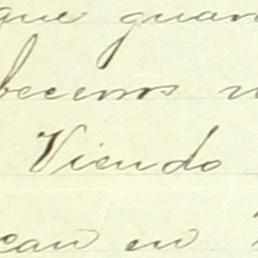 que guan
becemos n
Viendo
can en